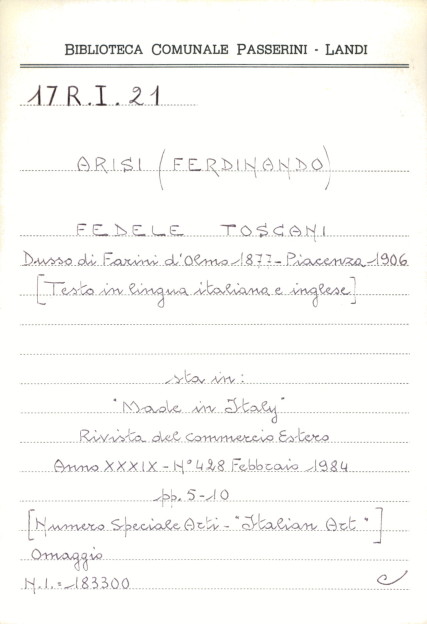 BIBLIOTECA COMUNALE PASSERINI - LANDI
17 R. I. 21
ARISI (FERDINANDO)
FEDELE TOSCANI
Dusso di Farini d'Olmo 1877 - Piacenza 1906
[Testo in lingua italiana e inglese]
sta in:
"Made in Italy"
Rivista del commercio Estero
Anno XXXIX - N° 428 Febbraio 1984
pp. 5-10
[Numero Speciale Arti - "Italian Art"]
Omaggio
N.I. = 183300